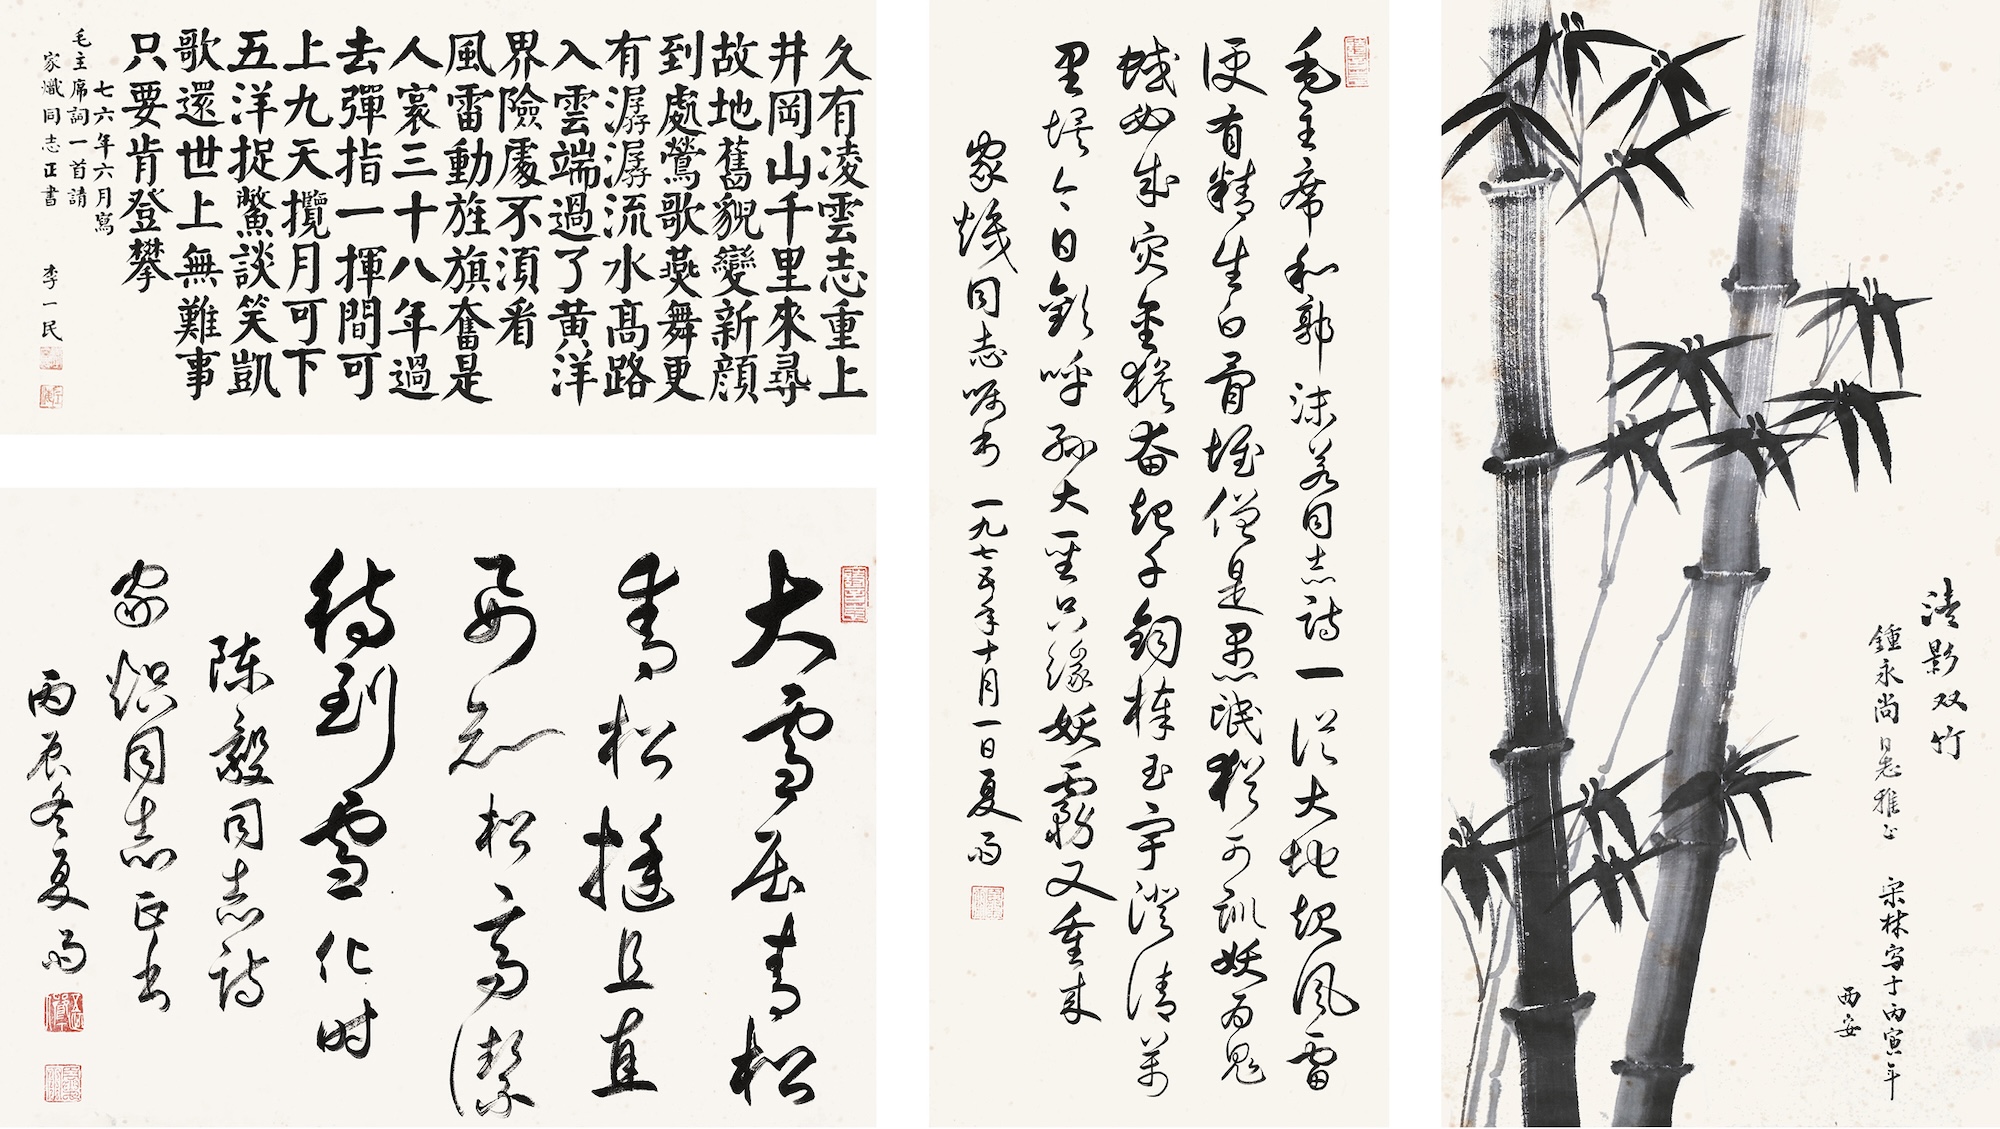 久有凌雲志重上
井岡山千里來尋
故地舊貌變新顏
到處鶯歌燕舞更
有潺潺流水高路
入雲端過了黃洋
界險處不須看
風雷動旌旗奮是
人寰三十八年過
去彈指一揮間可
上九天攬月可下
五洋捉鱉談笑凱
歌還世上無難事
只要肯登攀
七六年六月寫
毛主席詞一首請
家熾同志正書
李一民
大雪压青松
青松挺且直
要知松高潔
待到雪化时
陈毅同志诗
家炽同志正书
丙辰冬夏雨
毛主席和郭沫若同志诗一从大地起风雷
便有精生白骨堆僧是愚氓犹可训妖为鬼
蜮必成灾金猴奋起千钧棒玉宇澄清万
里埃今日欢呼孙大圣只缘妖雾又重来
家炽同志嘱书 一九七五年十月一日夏雨
清影双竹
鍾永尚 雅正
宋林写于丙寅年
西安